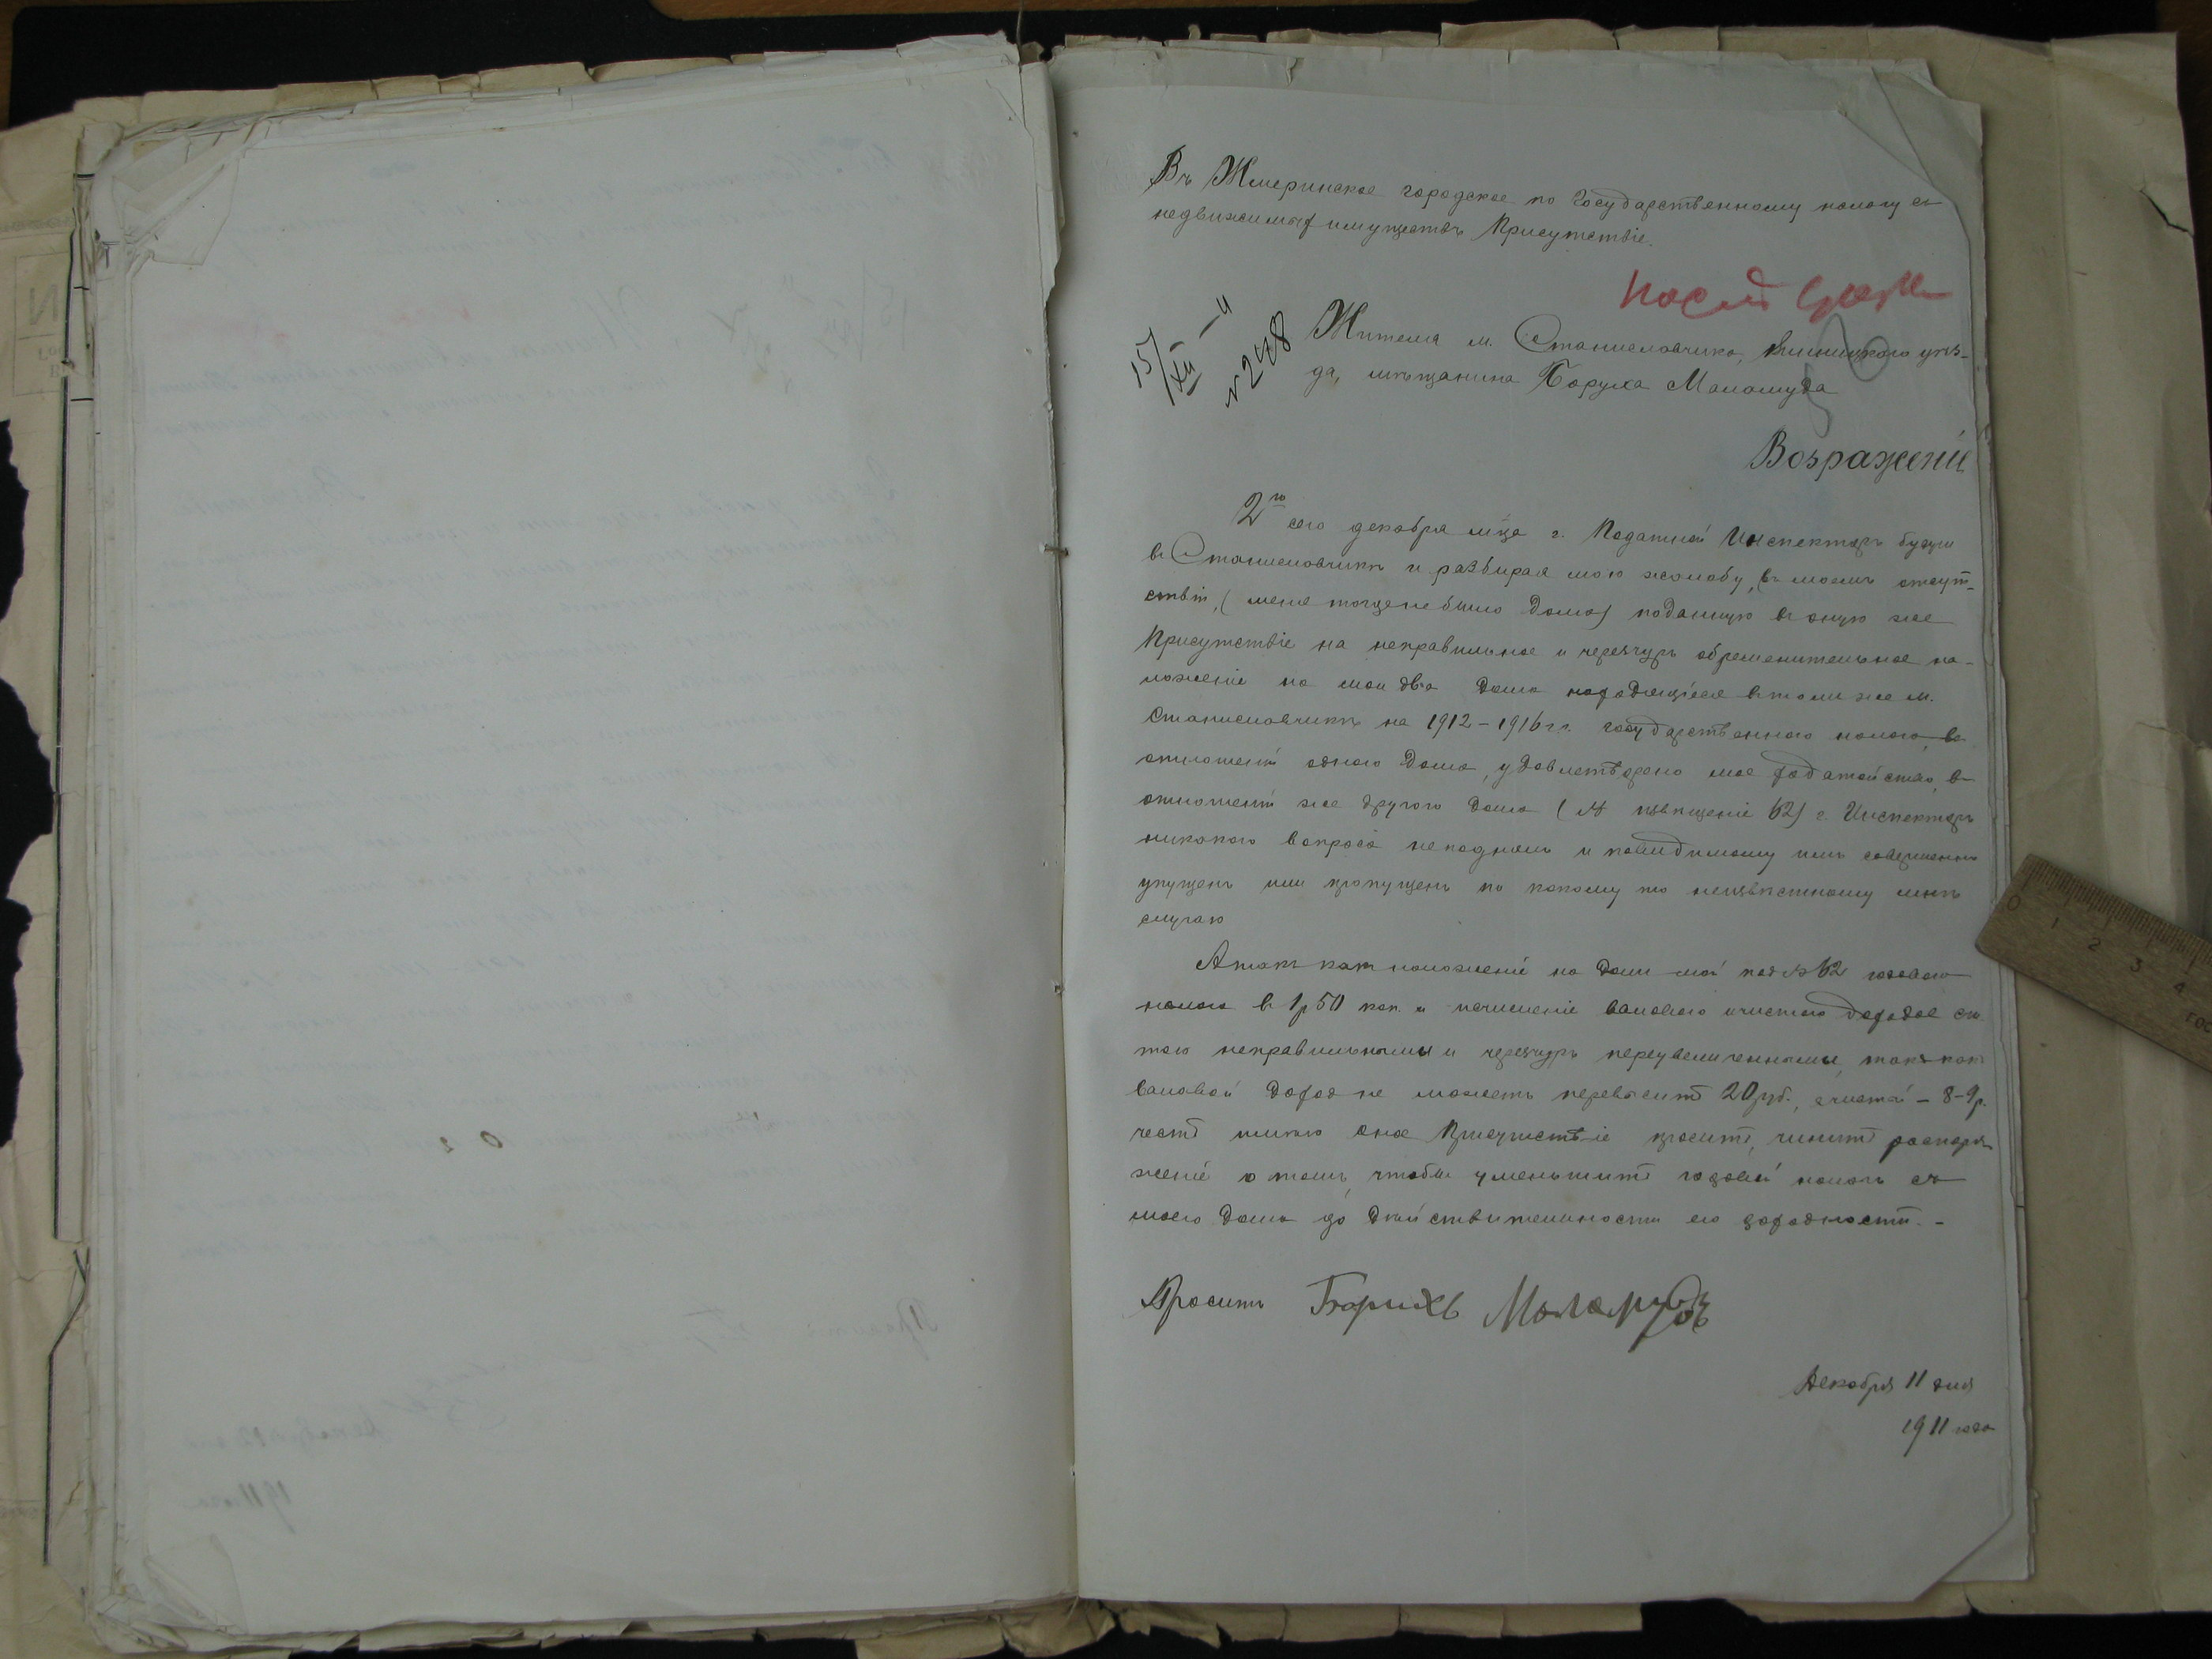 Въ Жмеринское городское по Государственному налогу съ
недвижимых имуществъ Присутствіе.
После срока
15/XII-11
№ 248
Жителя м. Станиславчика, Винницкого уѣз-
да, мѣщанина Боруха Маломуда
Возраженіе
2го сего декабря м-ца г. Податной Инспекторъ будучи
въ Станиславчикѣ и разбирая мою жалобу, въ моемъ отсут-
ствіи, (меня тогда не было дома) поданную въ оную же
Присутствіе на неправильное и черезчуръ обременительное на-
ложеніе на мои два дома находящіеся въ томъ же м.
Станиславчикѣ на 1912-1916 г.г. государственного налога, въ
отношеніи одного дома, удовлетворено мое ходатайство, въ
отношеніи же другого дома (№ извѣщеніе 62) г. Инспекторъ
никакого вопроса неподнялъ и повидимому имъ совершенно
упущенъ или пропущенъ по какому то неизвѣстному мнѣ
случаю
А такъ какъ наложеніе на домъ мой под № 62 годового
налога въ 1 р 50 коп. и исчисленіе валового и чистого дохода счи
таю неправильными и черезчуръ переувеличенными, такъ какъ
валовой доход не можетъ перевысить 20 руб., а чистый - 8-9 р.
честь имѣю оное Присутствіе просить, чинить распоря
женіе о томъ, чтобы уменьшить годовой налогъ съ
моего дома до дѣйствительности его доходности. -
Проситъ Борухъ Маламудъ
Декабря 11 дня
1911 года